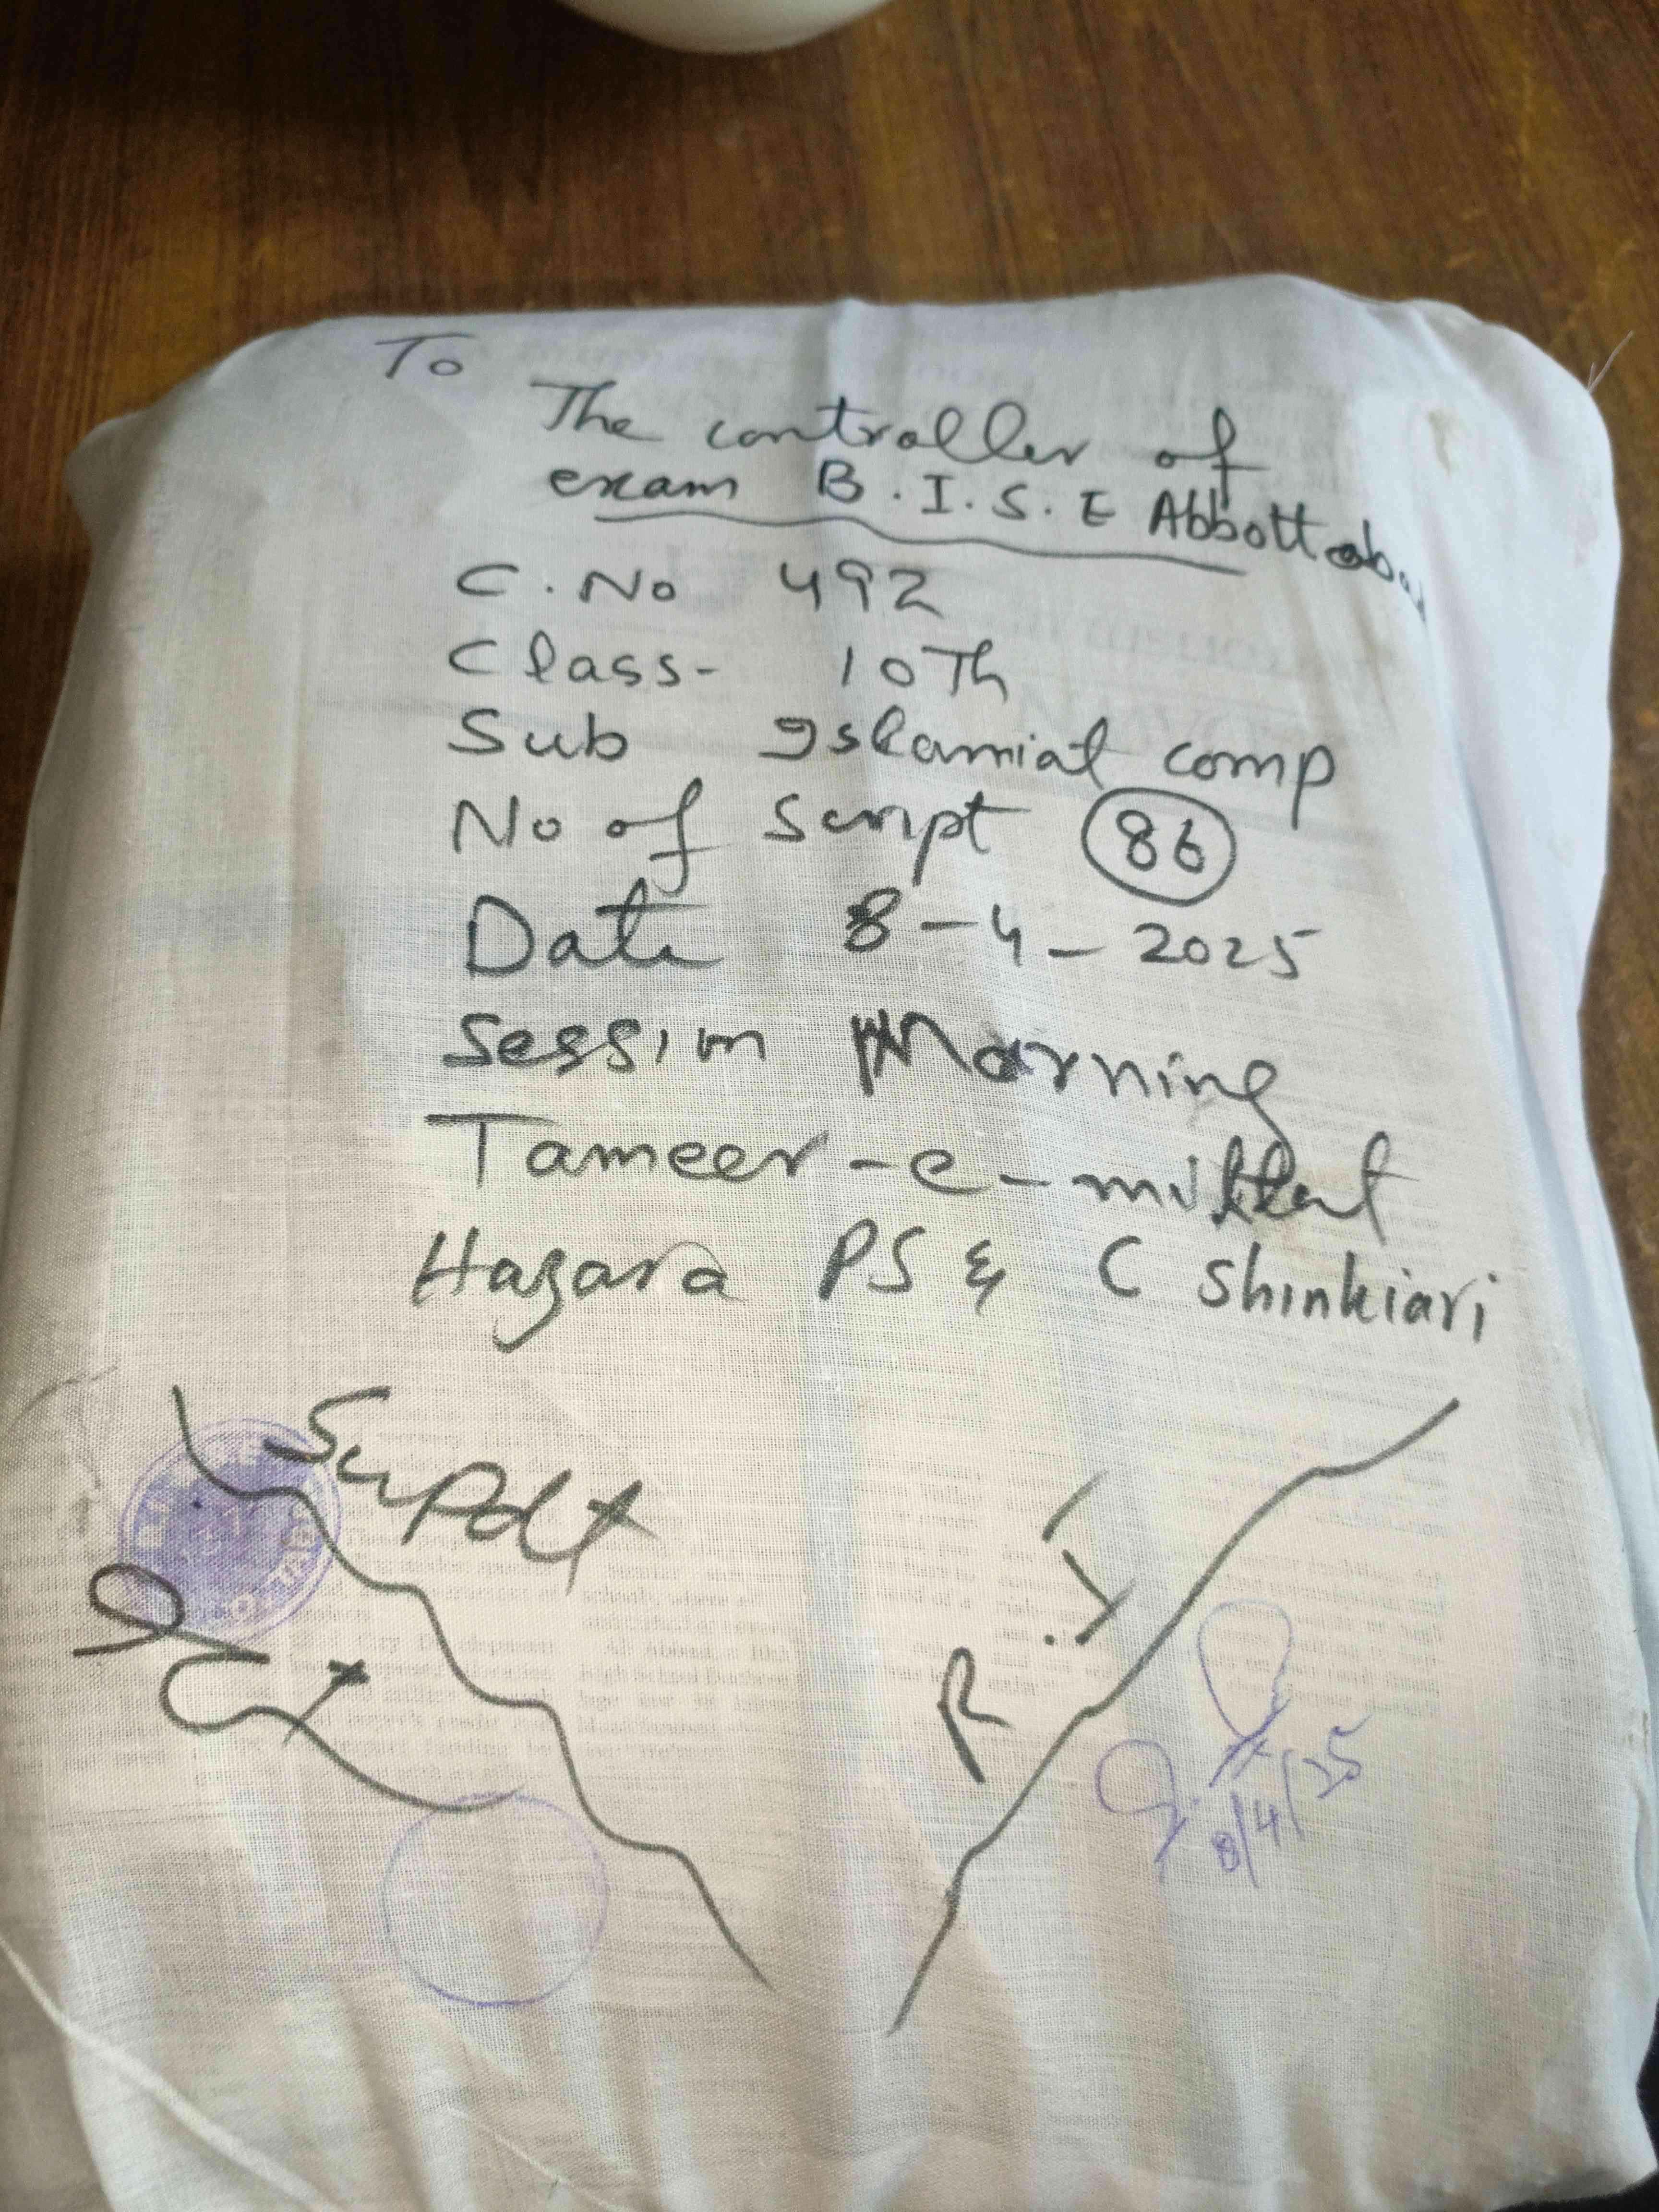 To
The controller of
exam B.I.S.E Abbottabad
C.No 492
Class- 10Th
Sub Islamiat comp
No of Script 86
Date 8-4-2025
Session Morning
Tameer-e-millat
Hazara PS & C Shinkiari
Supdt
R.I
8/4/25